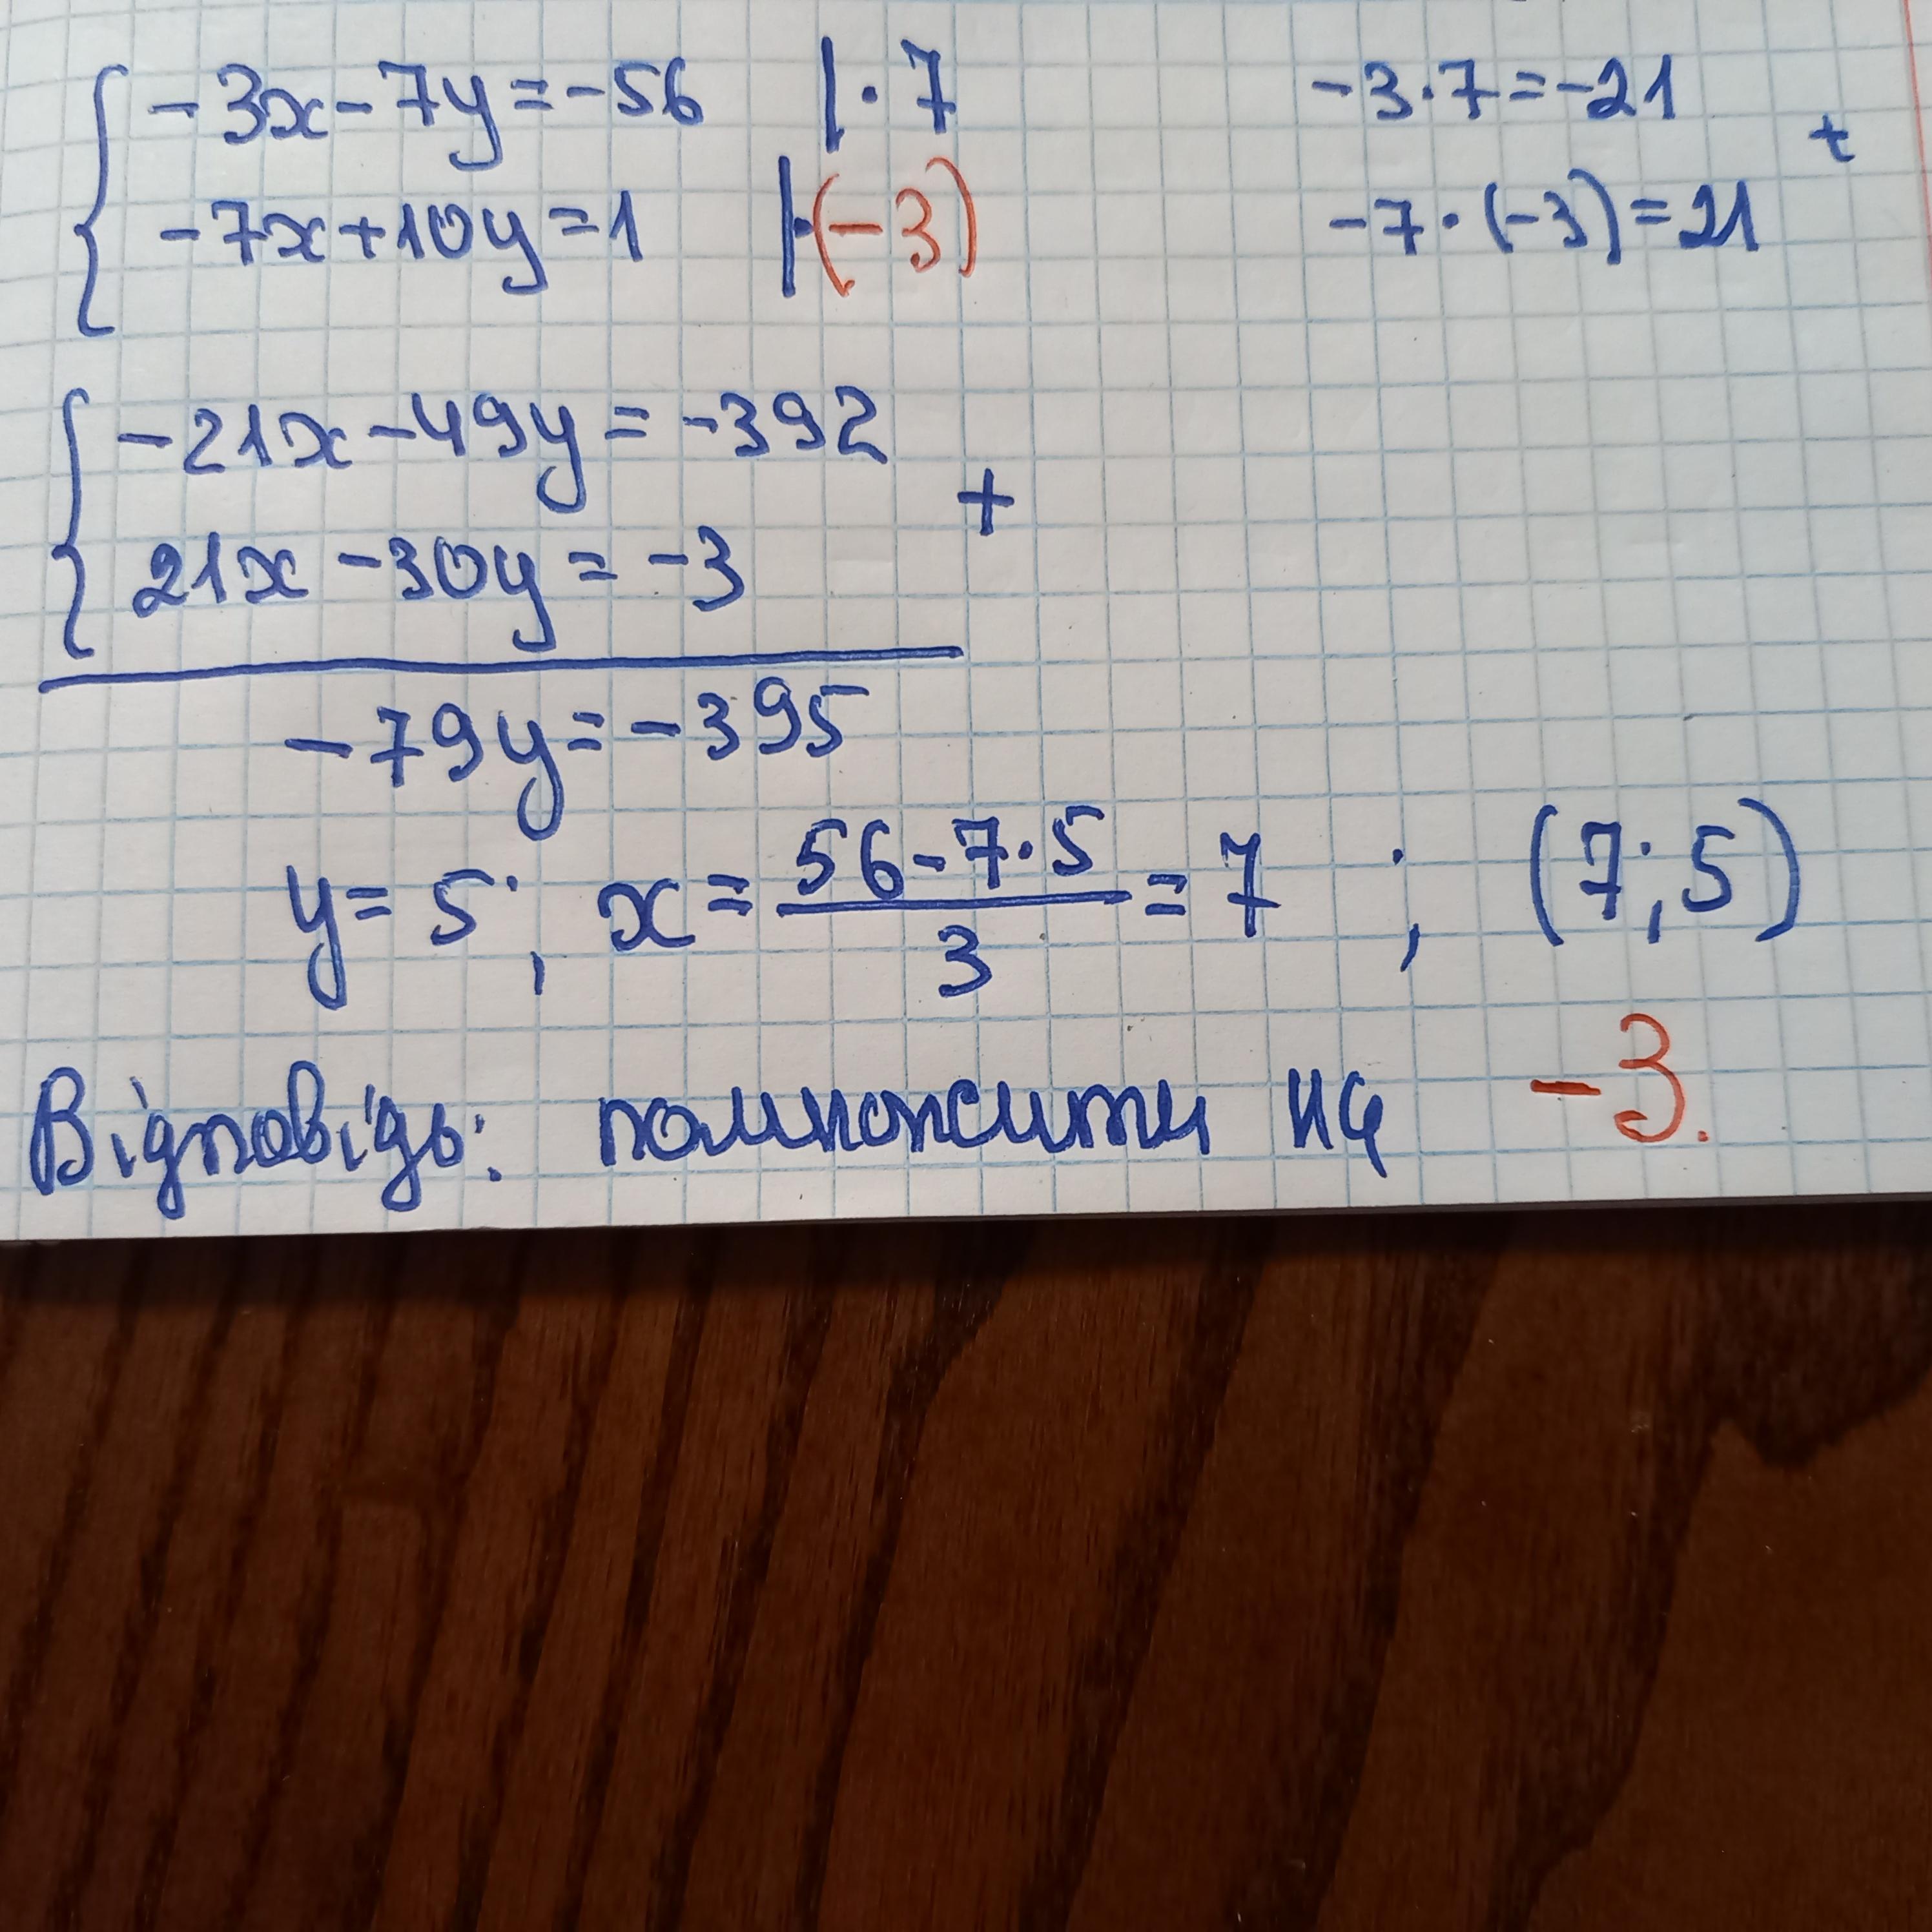 -3x-7y=-56 |·7 -3·7=-21
+
-7x+10y=1 |·(-3) -7·(-3)=21
-21x-49y=-392
+
21x-30y=-3
-79y=-395
y=5; x=56-7·5/3=7 ; (7;5)
Відповідь: помножити на -3.